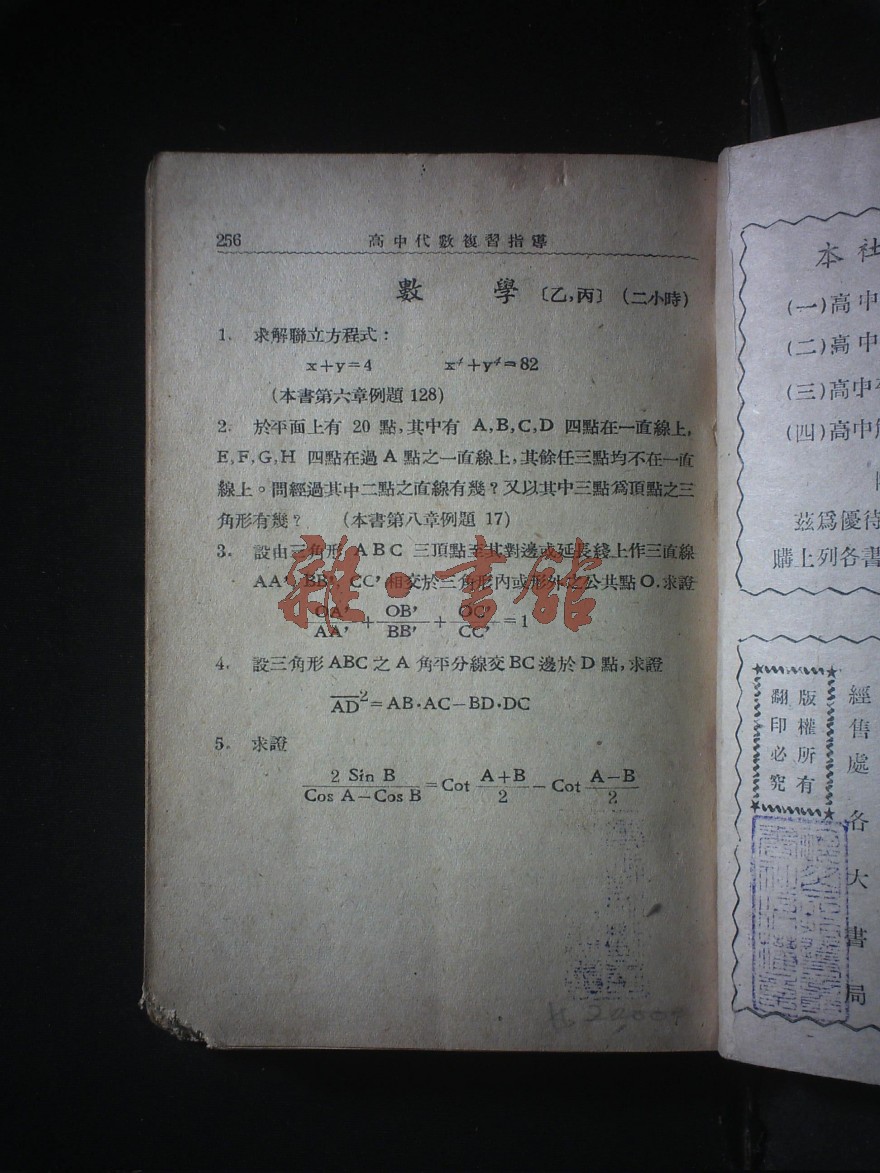 256 高中代數複習指導
數 學 〔乙,丙〕 (二小時)
1. 求解聯立方程式:
x+y=4 x⁴+y⁴=82
(本書第六章例題 128)
2. 於平面上有 20 點,其中有 A,B,C,D 四點在一直線上,
E,F,G,H 四點在過 A 點之一直線上,其餘任三點均不在一直
線上。問經過其中二點之直線有幾?又以其中三點爲頂點之三
角形有幾? (本書第八章例題 17)
3. 設由三角形 ABC 三頂點至其對邊或延長綫上作三直線
AA', BB', CC' 相交於三角形內或形外之公共點 O.求證
OA'/AA' + OB'/BB' + OC'/CC' = 1
4. 設三角形 ABC 之 A 角平分線交 BC 邊於 D 點,求證
AD²=AB·AC−BD·DC
5. 求證
2 Sin B/Cos A−Cos B = Cot A+B/2 − Cot A−B/2
雜·書館
本社
(一)高中
(二)高中
(三)高中
(四)高中
茲爲優待
購上列各書
版權所有
翻印必究
經售處 各大書局